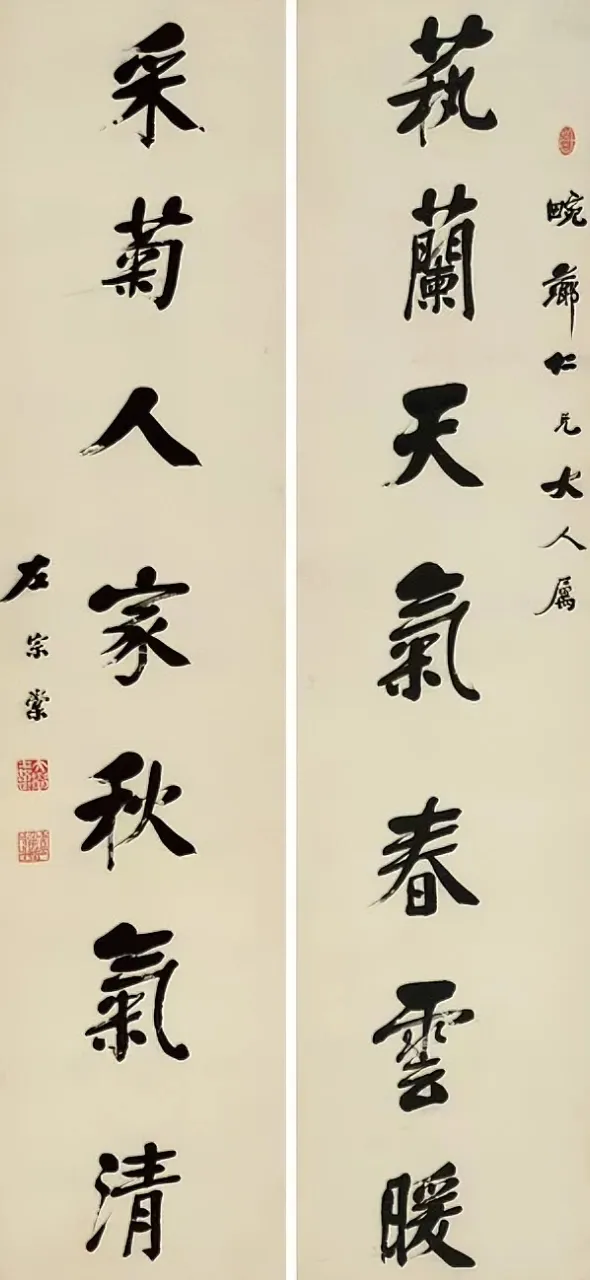 畹薌仁兄大人屬
蓺蘭天氣春雲暖
采菊人家秋氣清
左宗棠